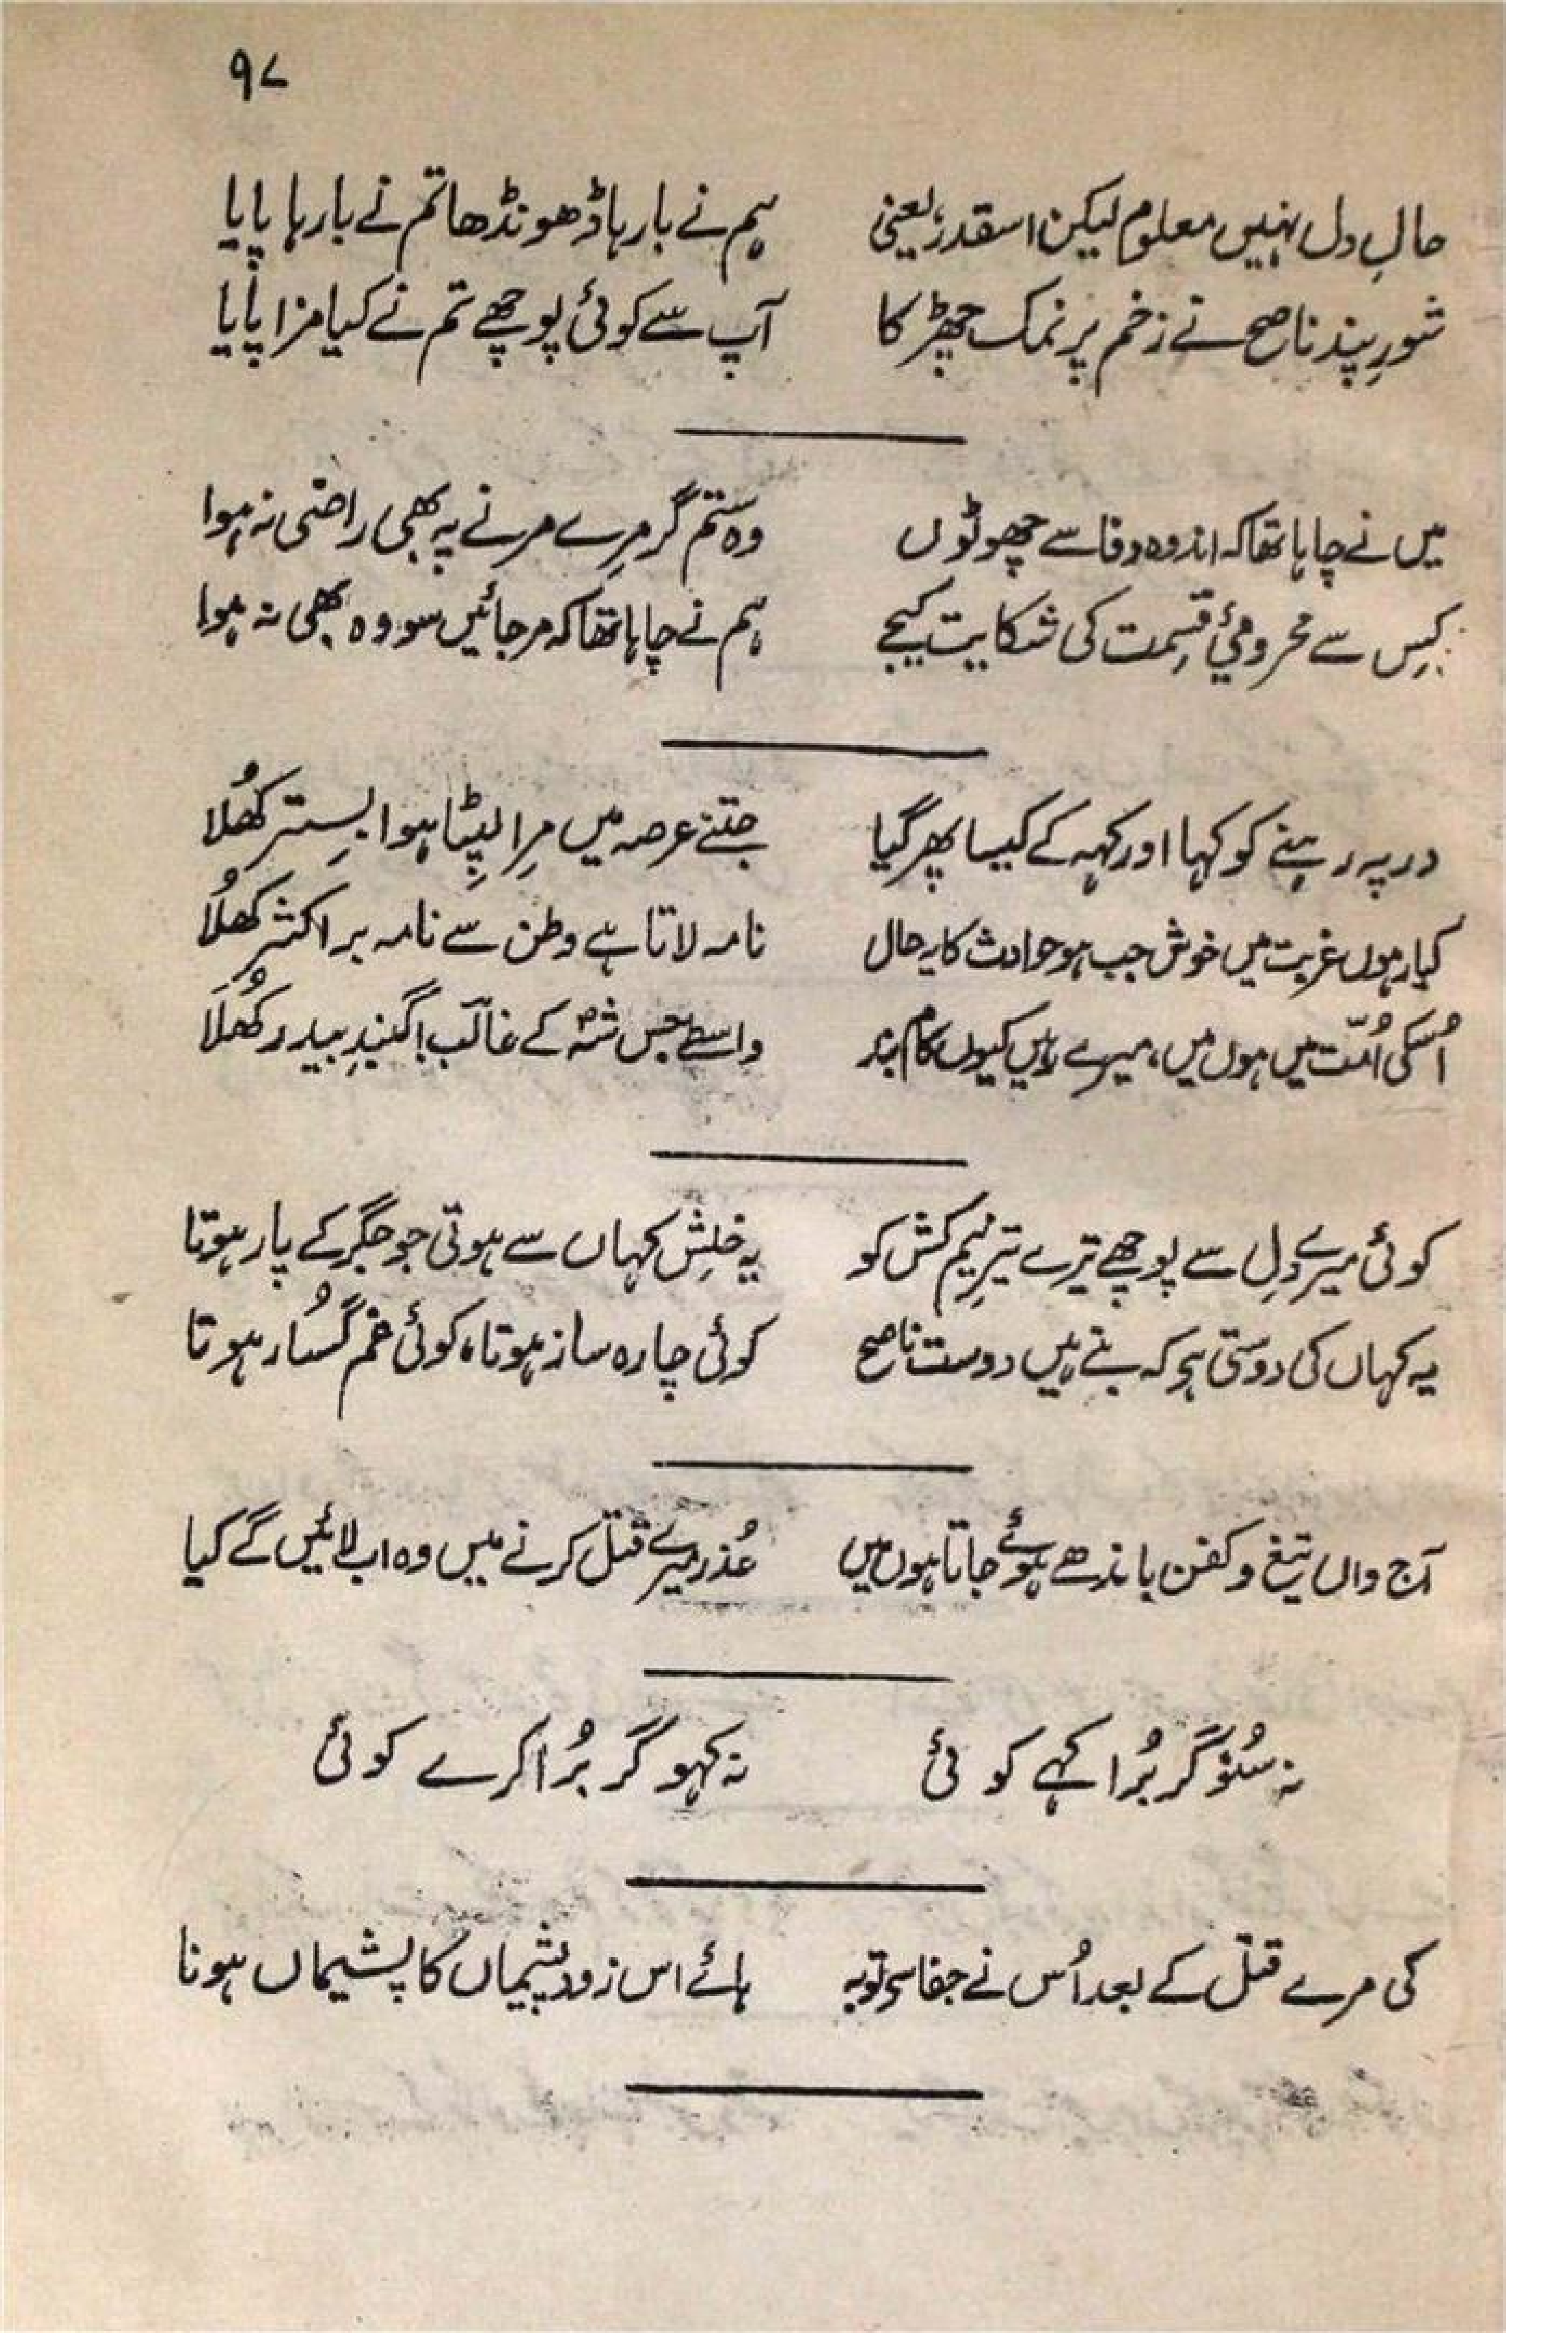 ۹۷
حالِ دل نہیں معلوم لیکن اسقدر یعنی ہم نے بارہا ڈھونڈھا تم نے بارہا پایا
شورِ پندِ ناصح نے زخم پر نمک چھڑکا آپ سے کوئی پوچھے تم نے کیا مزا پایا
میں نے چاہا تھا کہ اندوہ وفا سے چھوٹوں وہ ستم گر مِرے مرنے پہ بھی راضی نہ ہوا
کِس سے محرومیٔ قِسمت کی شکایت کیجے ہم نے چاہا تھا کہ مر جائیں سو وہ بھی نہ ہوا
در پہ رہنے کو کہا اور کہہ کے کیسا پھر گیا جتنے عرصہ میں مِرا لپِٹا ہوا بِستر کھُلا
کیا رہوں غربت میں خوش جب ہو حوادث کا یہ حال نامہ لاتا ہے وطن سے نامہ بر اکثر کھُلا
اُسکی اُمّت میں ہوں میں، میرے رہیں کیوں کام بند واسطے جس شہؐ کے غالؔب! گنبدِ بیدر کھُلا
کوئی میرے دِل سے پوچھے ترے تیرِ نیم کش کو یہ خلِش کہاں سے ہوتی جو جگر کے پار ہوتا
یہ کہاں کی دوستی ہو کہ بنے ہیں دوست ناصح کوئی چارہ ساز ہوتا، کوئی غم گسُار ہوتا
آج واں تیغ و کفن باندھے ہوئے جاتا ہوں میں عُذر میرے قتل کرنے میں وہ اب لائیں گے کیا
نہ سُنو گر بُرا کہے کوئی نہ کہو گر بُرا کرے کوئی
کی مرے قتل کے بعد اُس نے جفا سے توبہ ہائے اس زود پشیماں کا پشیماں ہونا